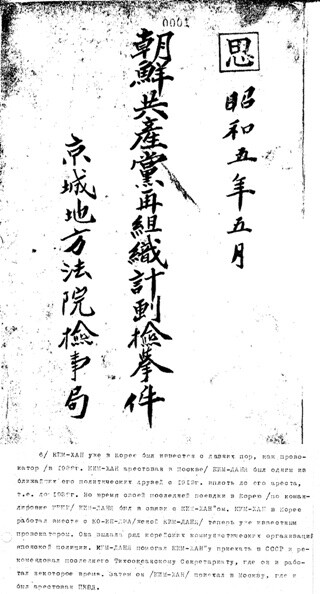 0001
思
昭和五年五月
朝鮮共産黨再組織計劃檢擧件
京城地方法院檢事局
6/ КИМ-ХАН уже в Корее был известен с давних пор, как прово-
катор /в 1936г. КИМ-ХАН арестован в Москве/ КИМ-ДАНЯ был одним из
ближайших его политических друзей с 1919г. вплоть до его ареста,
т.е. до 1936г. Во время своей последней поездки в Корею /по коман-
дировке ИККИ/ КИМ-ДАНЯ был в связи с КИМ-ХАН"ом. КИМ-ХАН в Корее
работал вместе с КО-МЕН-ДРА/женой КИМ-ДАНЯ/ теперь уже известным
провокатором. Она выдала ряд корейских коммунистических организаций
японской полиции. КИМ-ДАНЯ помогал КИМ-ХАН"у приехать в СССР и ре-
комендовал последнего Тихоокеанскому Секретариату, где он и рабо-
тал некоторое время. Затем он /КИМ-ХАН/ поехал в Москву, где и
был арестован НКВД.